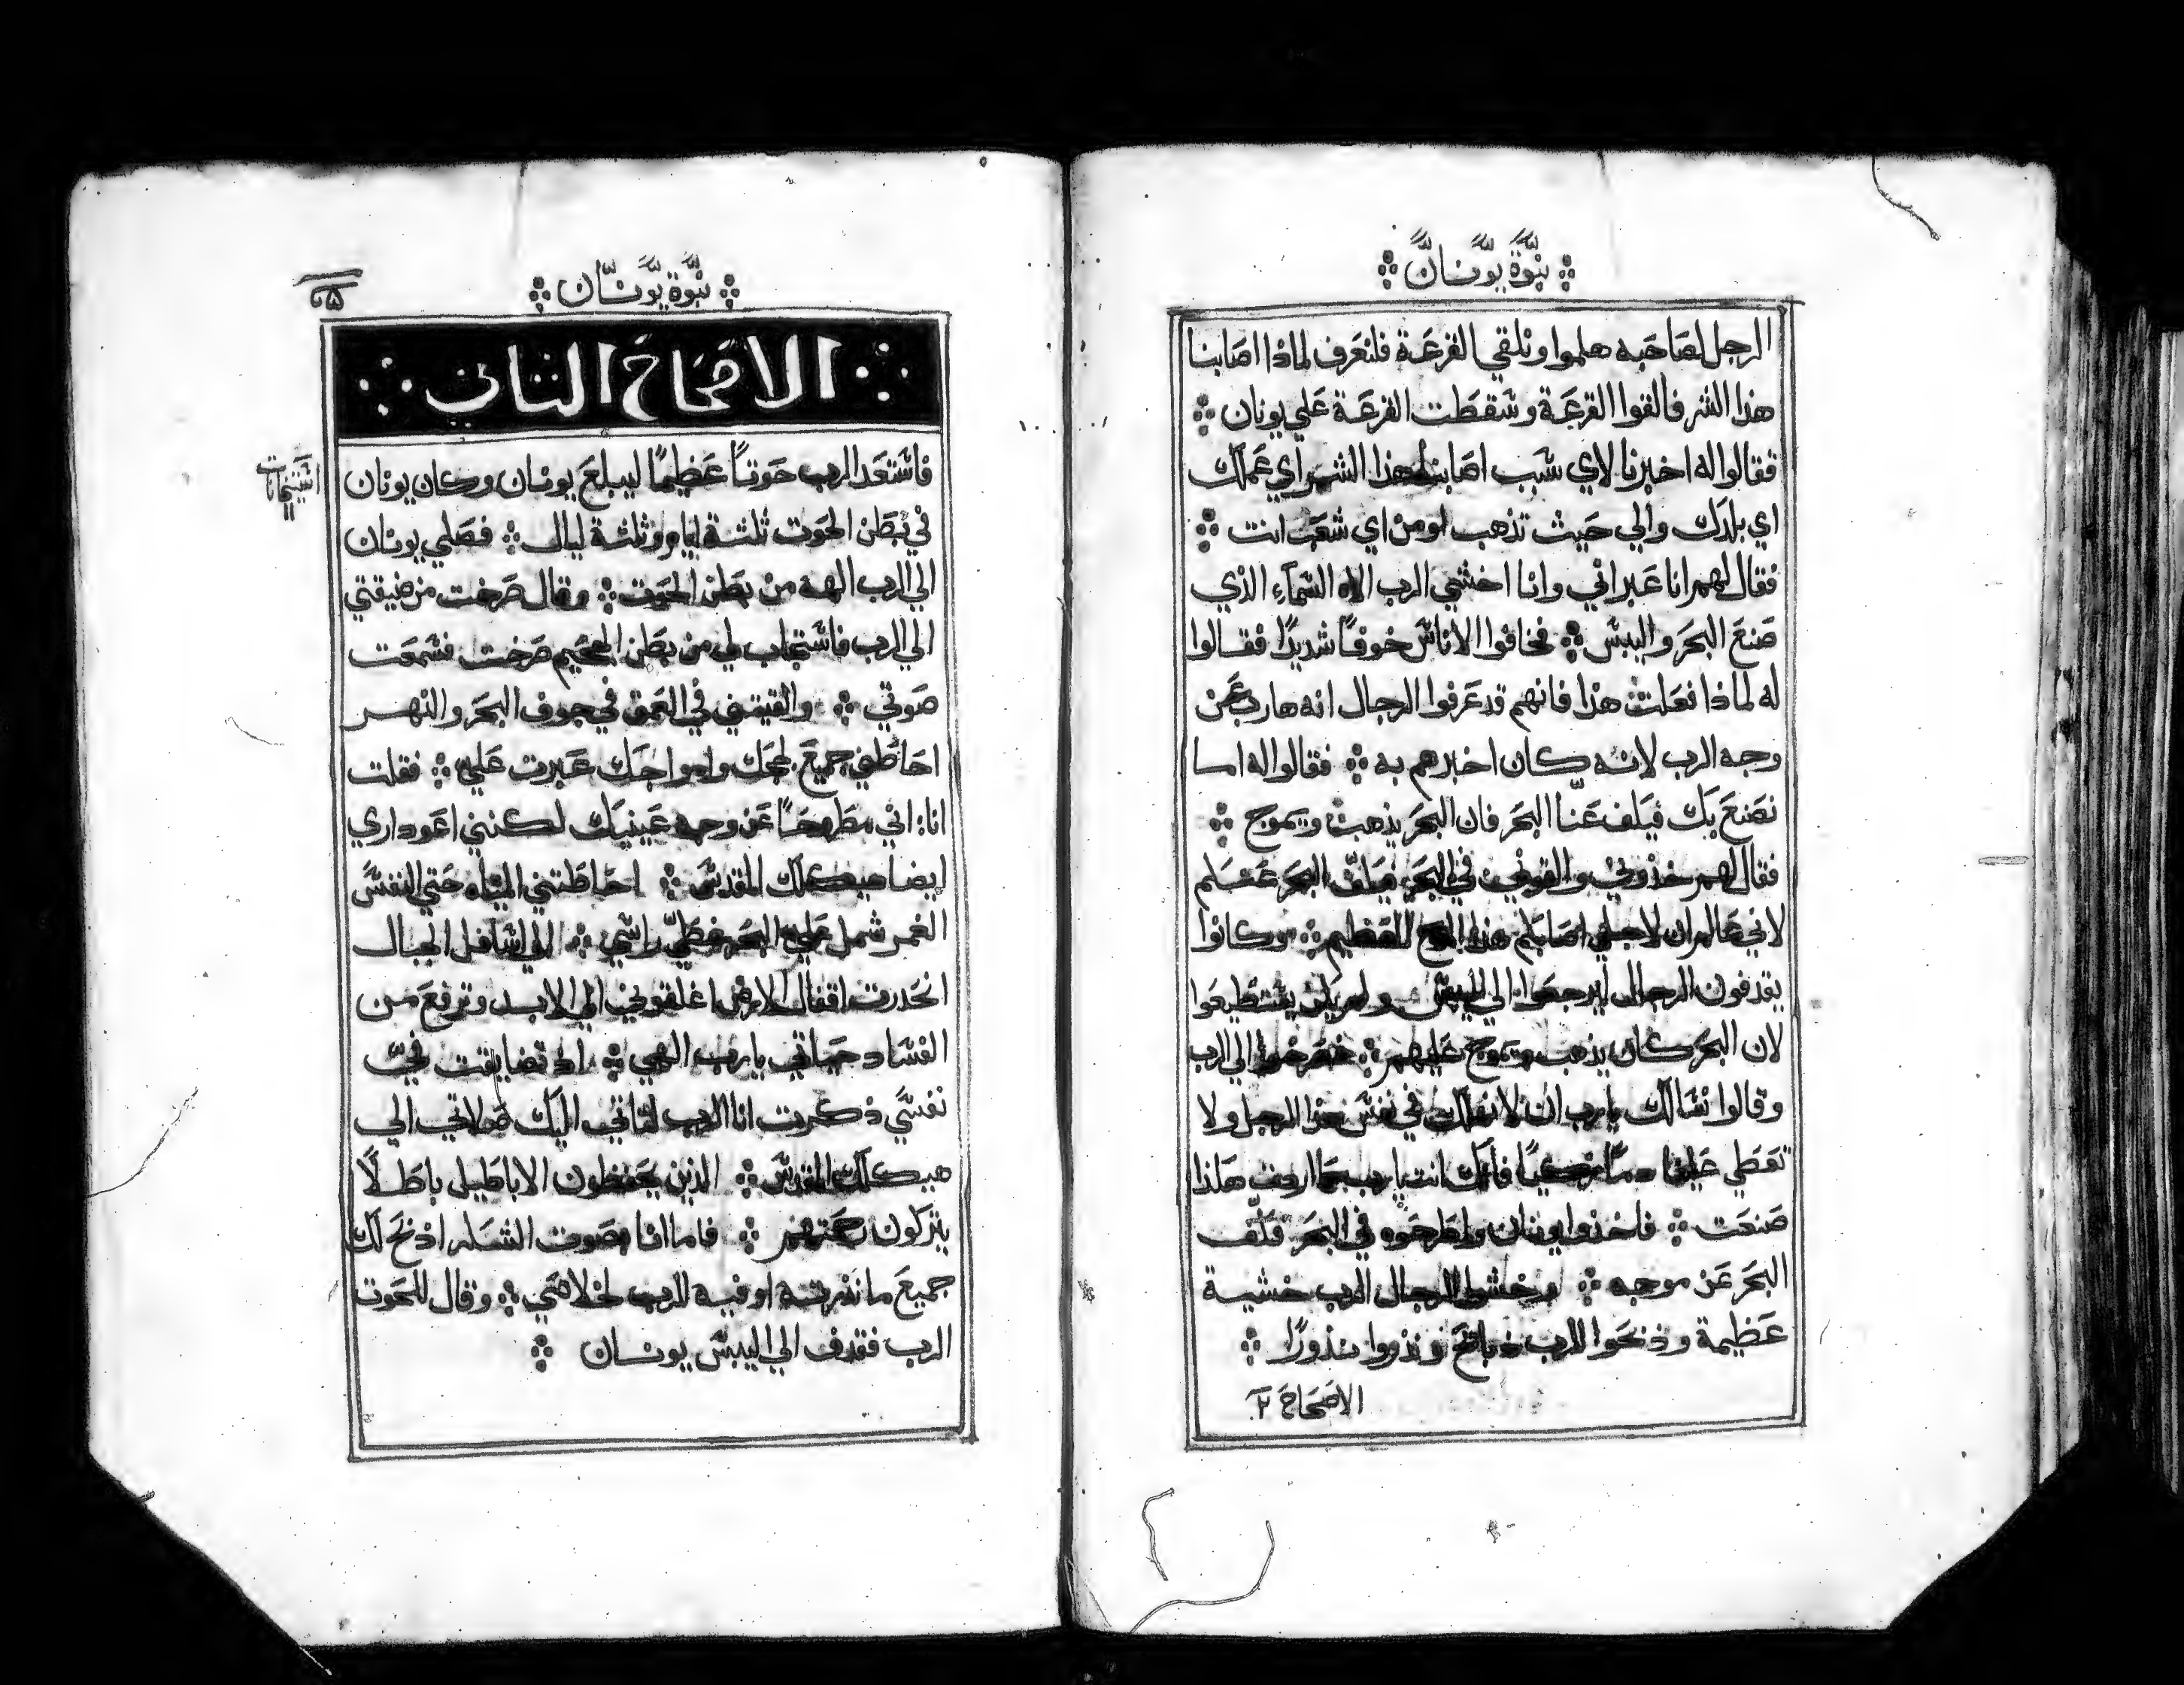 نبوة يونان
الرجل لصاحبه هلموا ونلقي القرعة فلنعرف لماذا اصابنا
هذا الشر فالقوا القرعة وسقطت القرعة علي يونان
فقالوا له اخبرنا لاي سبب اصابنا هذا الشر واي عملك
اي بلدك والي حيث تذهب او من اي شعب انت
فقال لهم انا عبراني وانا اخشي الرب الاه السماء الذي
صنع البحر واليبس فخافوا الاناس خوفًا شديدًا فقالوا
له لماذا فعلت هذا فانهم قد عرفوا الرجال انه هارب عن
وجه الرب لانه كان اخبرهم به فقالوا له اما
نصنع بك فيكف عنا البحر فان البحر يذهب ويتموج
فقال لهم خذوني والقوني في البحر فيكف البحر عنكم
لاني عالم ان لاجلي اصابكم هذا الموج العظيم وكانوا
يقذفون الرجال ليرجعوا الي اليبس ولم يكن يستطيعوا
لان البحر كان يذهب ويتموج عليهم فصرخوا الي الرب
وقالوا نسالك يارب ان لا نهلك في نفس هذا الرجل ولا
تعطي علينا دمًا زكيًا فانك انت يارب كما اردت هكذا
صنعت فاخذوا يونان واطرحوه في البحر فكف
البحر عن موجه وخشوا الرجال الرب خشية
عظيمة وذبحوا للرب ذبائح ونذروا نذورًا
الاصحاح ٢
نبوة يونان
الاصحاح الثاني
فاستعد الرب حوتًا عظيمًا ليبلع يونان وكان يونان
في بطن الحوت ثلثة ايام وثلثة ليال فصلي يونان
الي الرب الهه من بطن الحوت وقال صرخت من ضيقتي
الي الرب فاستجاب لي من بطن الجحيم صرخت فسمعت
صوتي والقيتني في العمق في جوف البحر والنهر
احاطني جميع لججك وامواجك عبرت علي فقلت
انا اني مطروحًا عن وجه عينيك لكنني اعود اري
ايضا هيكلك المقدس احاطتني المياه حتي النفس
الغمر شمل علي البحر غطي راسي الي اسافل الجبال
انحدرت اقفال الارض اغلقوني الي الابد وترفع من
الفساد حياتي يارب الهي اذ تضايقت في
نفسي ذكرت انا الرب لتاتي اليك صلاتي الي
هيكلك المقدس الذين يحفظون الاباطيل باطلًا
يتركون رحمتهم فاما انا بصوت الشكر اذبح لك
جميع ما نذرته اوفيه للرب لخلاصي وقال للحوت
الرب فقذف الي اليبس يونان